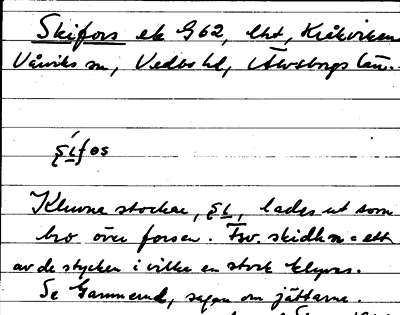 Skifors ek G62, lht, Kråkviken
Vårviks sn, Vedbo hd, Älvsborgs län.
şífos
Kluvna stockar, şı̵, lades ut som
bro över forsen. Fsv. skidh n = ett
av de stycken i vilka en stock klyves.
Se Gammerud, sagan om jättarne.